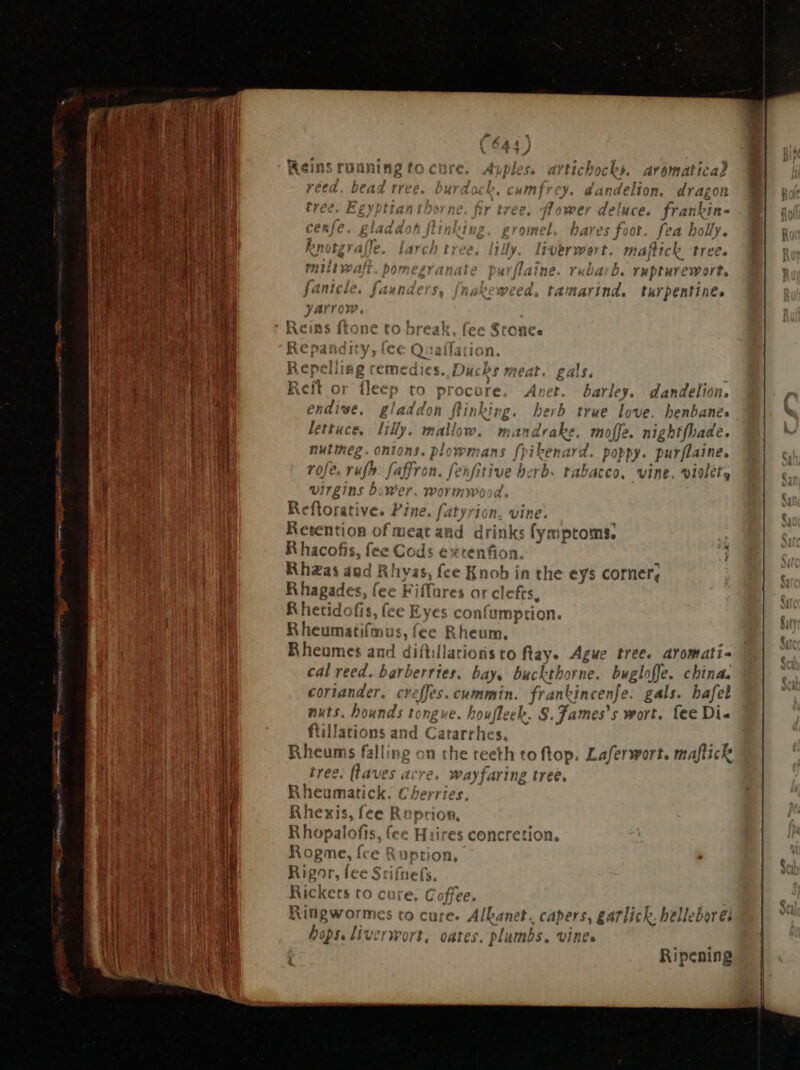 (644)
Reins running to cure. Apples. artichocks. aromatical
reed. bead tree. burdock. cumfrey. dandelion. dragon
tree. Egyptian thorne. fir tree. flower deluce. frankin-
cenſe. gladdon ſtinking. gromel. hares foot. ſea holly.
knotgraſſe. larch tree. lilly. liverwort. maſtick tree.
miltwaſt. pomegranate purſlaine. rubarb. rupturewort.
ſanicle. ſaunders, ſnakeweed. tamarind. turpentine.
yarrow.
Reins ſtone to break, ſee Stone.
Repandity, ſee Quaſſation.
Repelling remedies. Ducks meat. gals.
Reſt or ſleep to procure. Anet. barley. dandelion.
endive. gladdon ſtinking. herb true love. henbane.
lettuce. lilly. mallow. mandrake. moſſe. nightſhade.
nutmeg. onions. plowmans ſpikenard. poppy. purſlaine.
roſe. ruſh. ſaffron. ſenſitive herb. tabacco. vine. violet,
virgins bower. wormwood.
Reſtorative. Pine. ſatyrion. vine.
Retention of meat and drinks ſymptoms.
Rhacoſis, ſee Cods extenſion.
Rhæas and Rhyas, ſee Knob in the eys corner,
Rhagades, ſee Fiſſures or clefts,
Rhetidoſis, ſee Eyes conſumption.
Rheumatiſmus, ſee Rheum.
Rheumes and diſtillations to ſtay. Ague tree. aromati-
cal reed. barberries. bay. buckthorne. bugloſſe. china.
coriander. creſſes. cummin. frankincenſe. gals. haſel
nuts. hounds tongue. houſleek. S. James's wort. ſee Di-
ſtillations and Catarrhes.
Rheums falling on the teeth to ſtop. Laſerwort. maſtick
tree. ſtaves acre. wayfaring tree.
Rheumatick. Cherries.
Rhexis, ſee Ruption.
Rhopaloſis, ſee Haires concretion.
Rogme, ſee Ruption.
Rigor, ſee Stifneſs.
Rickets to cure. Coffee.
Ringwormes to cure. Alkanet. capers, garlick. hellebore.
hops. liverwort, oates. plumbs. vine.
Ripening